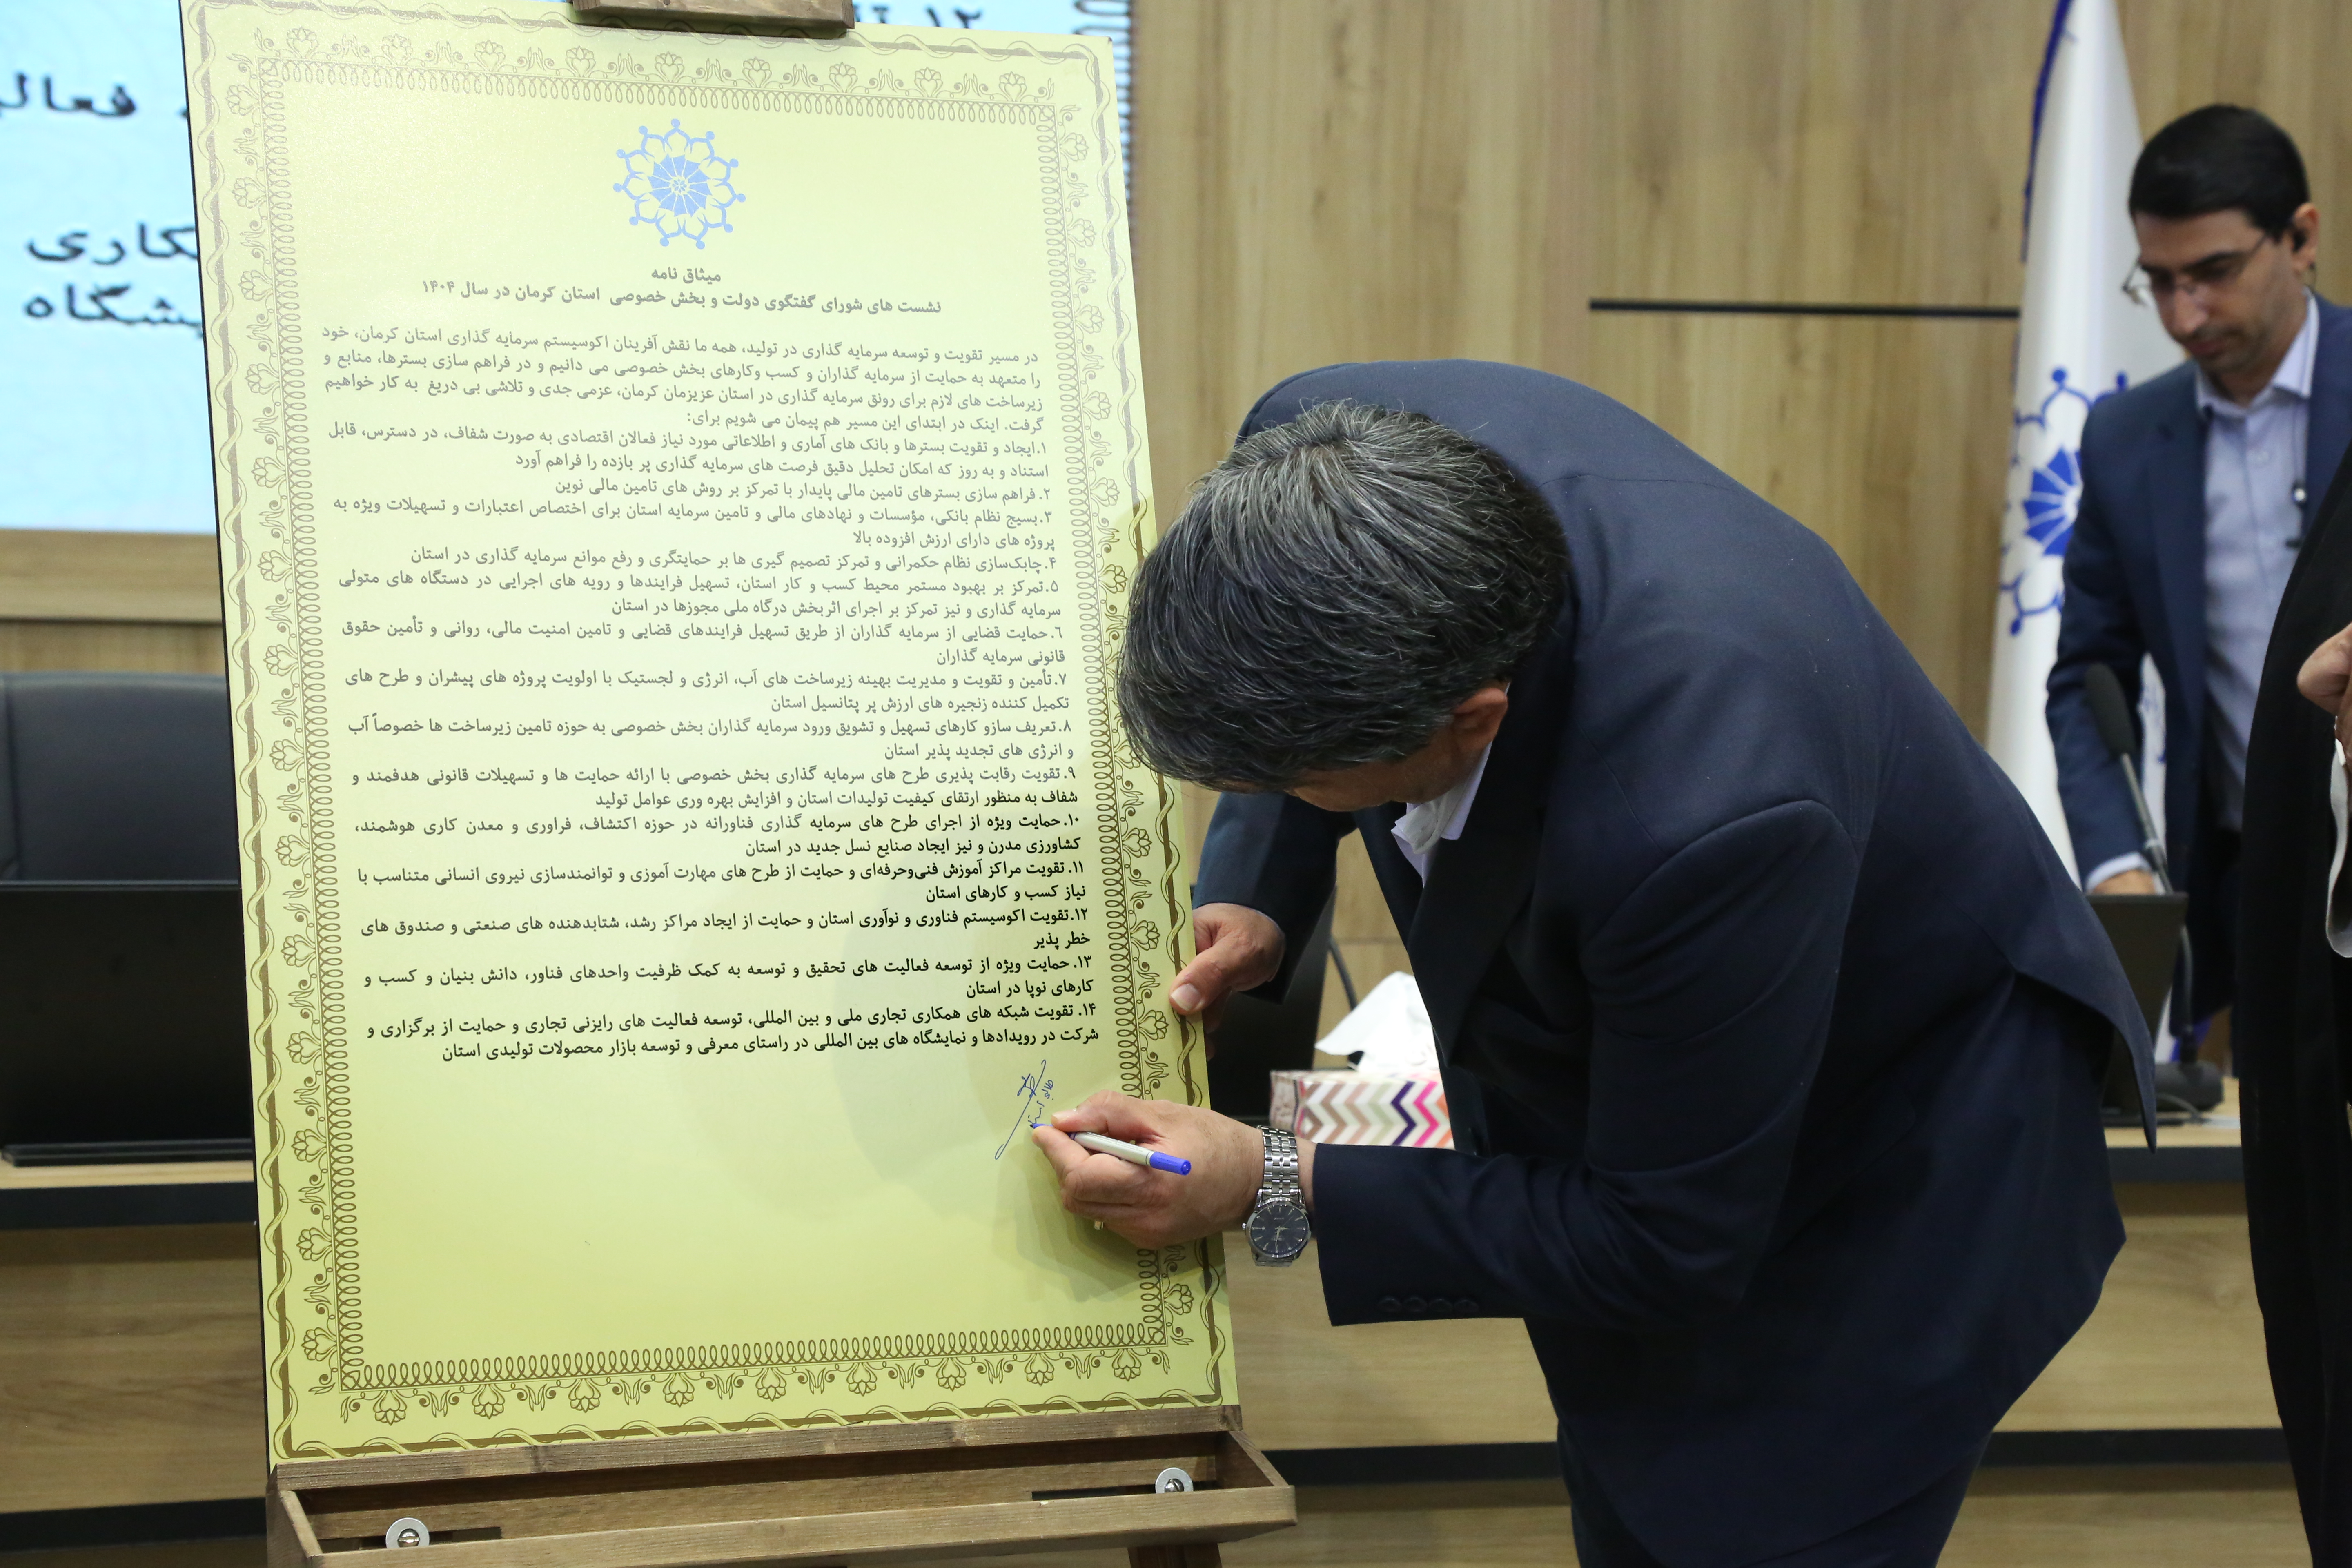 ۱۲
فعالی
کاری
یشگاه
میثاق نامه
نشست های شورای گفتگوی دولت و بخش خصوصی استان کرمان در سال ۱۴۰۴
در مسیر تقویت و توسعه سرمایه گذاری در تولید، همه ما نقش آفرینان اکوسیستم سرمایه گذاری استان کرمان، خود
را متعهد به حمایت از سرمایه گذاران و کسب وکارهای بخش خصوصی می دانیم و در فراهم سازی بسترها، منابع و
زیرساخت های لازم برای رونق سرمایه گذاری در استان عزیزمان کرمان، عزمی جدی و تلاشی بی دریغ به کار خواهیم
گرفت. اینک در ابتدای این مسیر هم پیمان می شویم برای:
۱.ایجاد و تقویت بسترها و بانک های آماری و اطلاعاتی مورد نیاز فعالان اقتصادی به صورت شفاف، در دسترس، قابل
استناد و به روز که امکان تحلیل دقیق فرصت های سرمایه گذاری پر بازده را فراهم آورد
۲. فراهم سازی بسترهای تامین مالی پایدار با تمرکز بر روش های تامین مالی نوین
۳.بسیج نظام بانکی، مؤسسات و نهادهای مالی و تامین سرمایه استان برای اختصاص اعتبارات و تسهیلات ویژه به
پروژه های دارای ارزش افزوده بالا
۴.چابک‌سازی نظام حکمرانی و تمرکز تصمیم گیری ها بر حمایتگری و رفع موانع سرمایه گذاری در استان
۵.تمرکز بر بهبود مستمر محیط کسب و کار استان، تسهیل فرایندها و رویه های اجرایی در دستگاه های متولی
سرمایه گذاری و نیز تمرکز بر اجرای اثربخش درگاه ملی مجوزها در استان
۶.حمایت قضایی از سرمایه گذاران از طریق تسهیل فرایندهای قضایی و تامین امنیت مالی، روانی و تأمین حقوق
قانونی سرمایه گذاران
۷.تأمین و تقویت و مدیریت بهینه زیرساخت های آب، انرژی و لجستیک با اولویت پروژه های پیشران و طرح های
تکمیل کننده زنجیره های ارزش پر پتانسیل استان
۸.تعریف سازو کارهای تسهیل و تشویق ورود سرمایه گذاران بخش خصوصی به حوزه تامین زیرساخت ها خصوصاً آب
و انرژی های تجدید پذیر استان
۹. تقویت رقابت پذیری طرح های سرمایه گذاری بخش خصوصی با ارائه حمایت ها و تسهیلات قانونی هدفمند و
شفاف به منظور ارتقای کیفیت تولیدات استان و افزایش بهره وری عوامل تولید
۱۰.حمایت ویژه از اجرای طرح های سرمایه گذاری فناورانه در حوزه اکتشاف، فراوری و معدن کاری هوشمند،
کشاورزی مدرن و نیز ایجاد صنایع نسل جدید در استان
۱۱. تقویت مراکز آموزش فنی‌وحرفه‌ای و حمایت از طرح های مهارت آموزی و توانمندسازی نیروی انسانی متناسب با
نیاز کسب و کارهای استان
۱۲.تقویت اکوسیستم فناوری و نوآوری استان و حمایت از ایجاد مراکز رشد، شتابدهنده های صنعتی و صندوق های
خطر پذیر
۱۳. حمایت ویژه از توسعه فعالیت های تحقیق و توسعه به کمک ظرفیت واحدهای فناور، دانش بنیان و کسب و
کارهای نوپا در استان
۱۴. تقویت شبکه های همکاری تجاری ملی و بین المللی، توسعه فعالیت های رایزنی تجاری و حمایت از برگزاری و
شرکت در رویدادها و نمایشگاه های بین المللی در راستای معرفی و توسعه بازار محصولات تولیدی استان